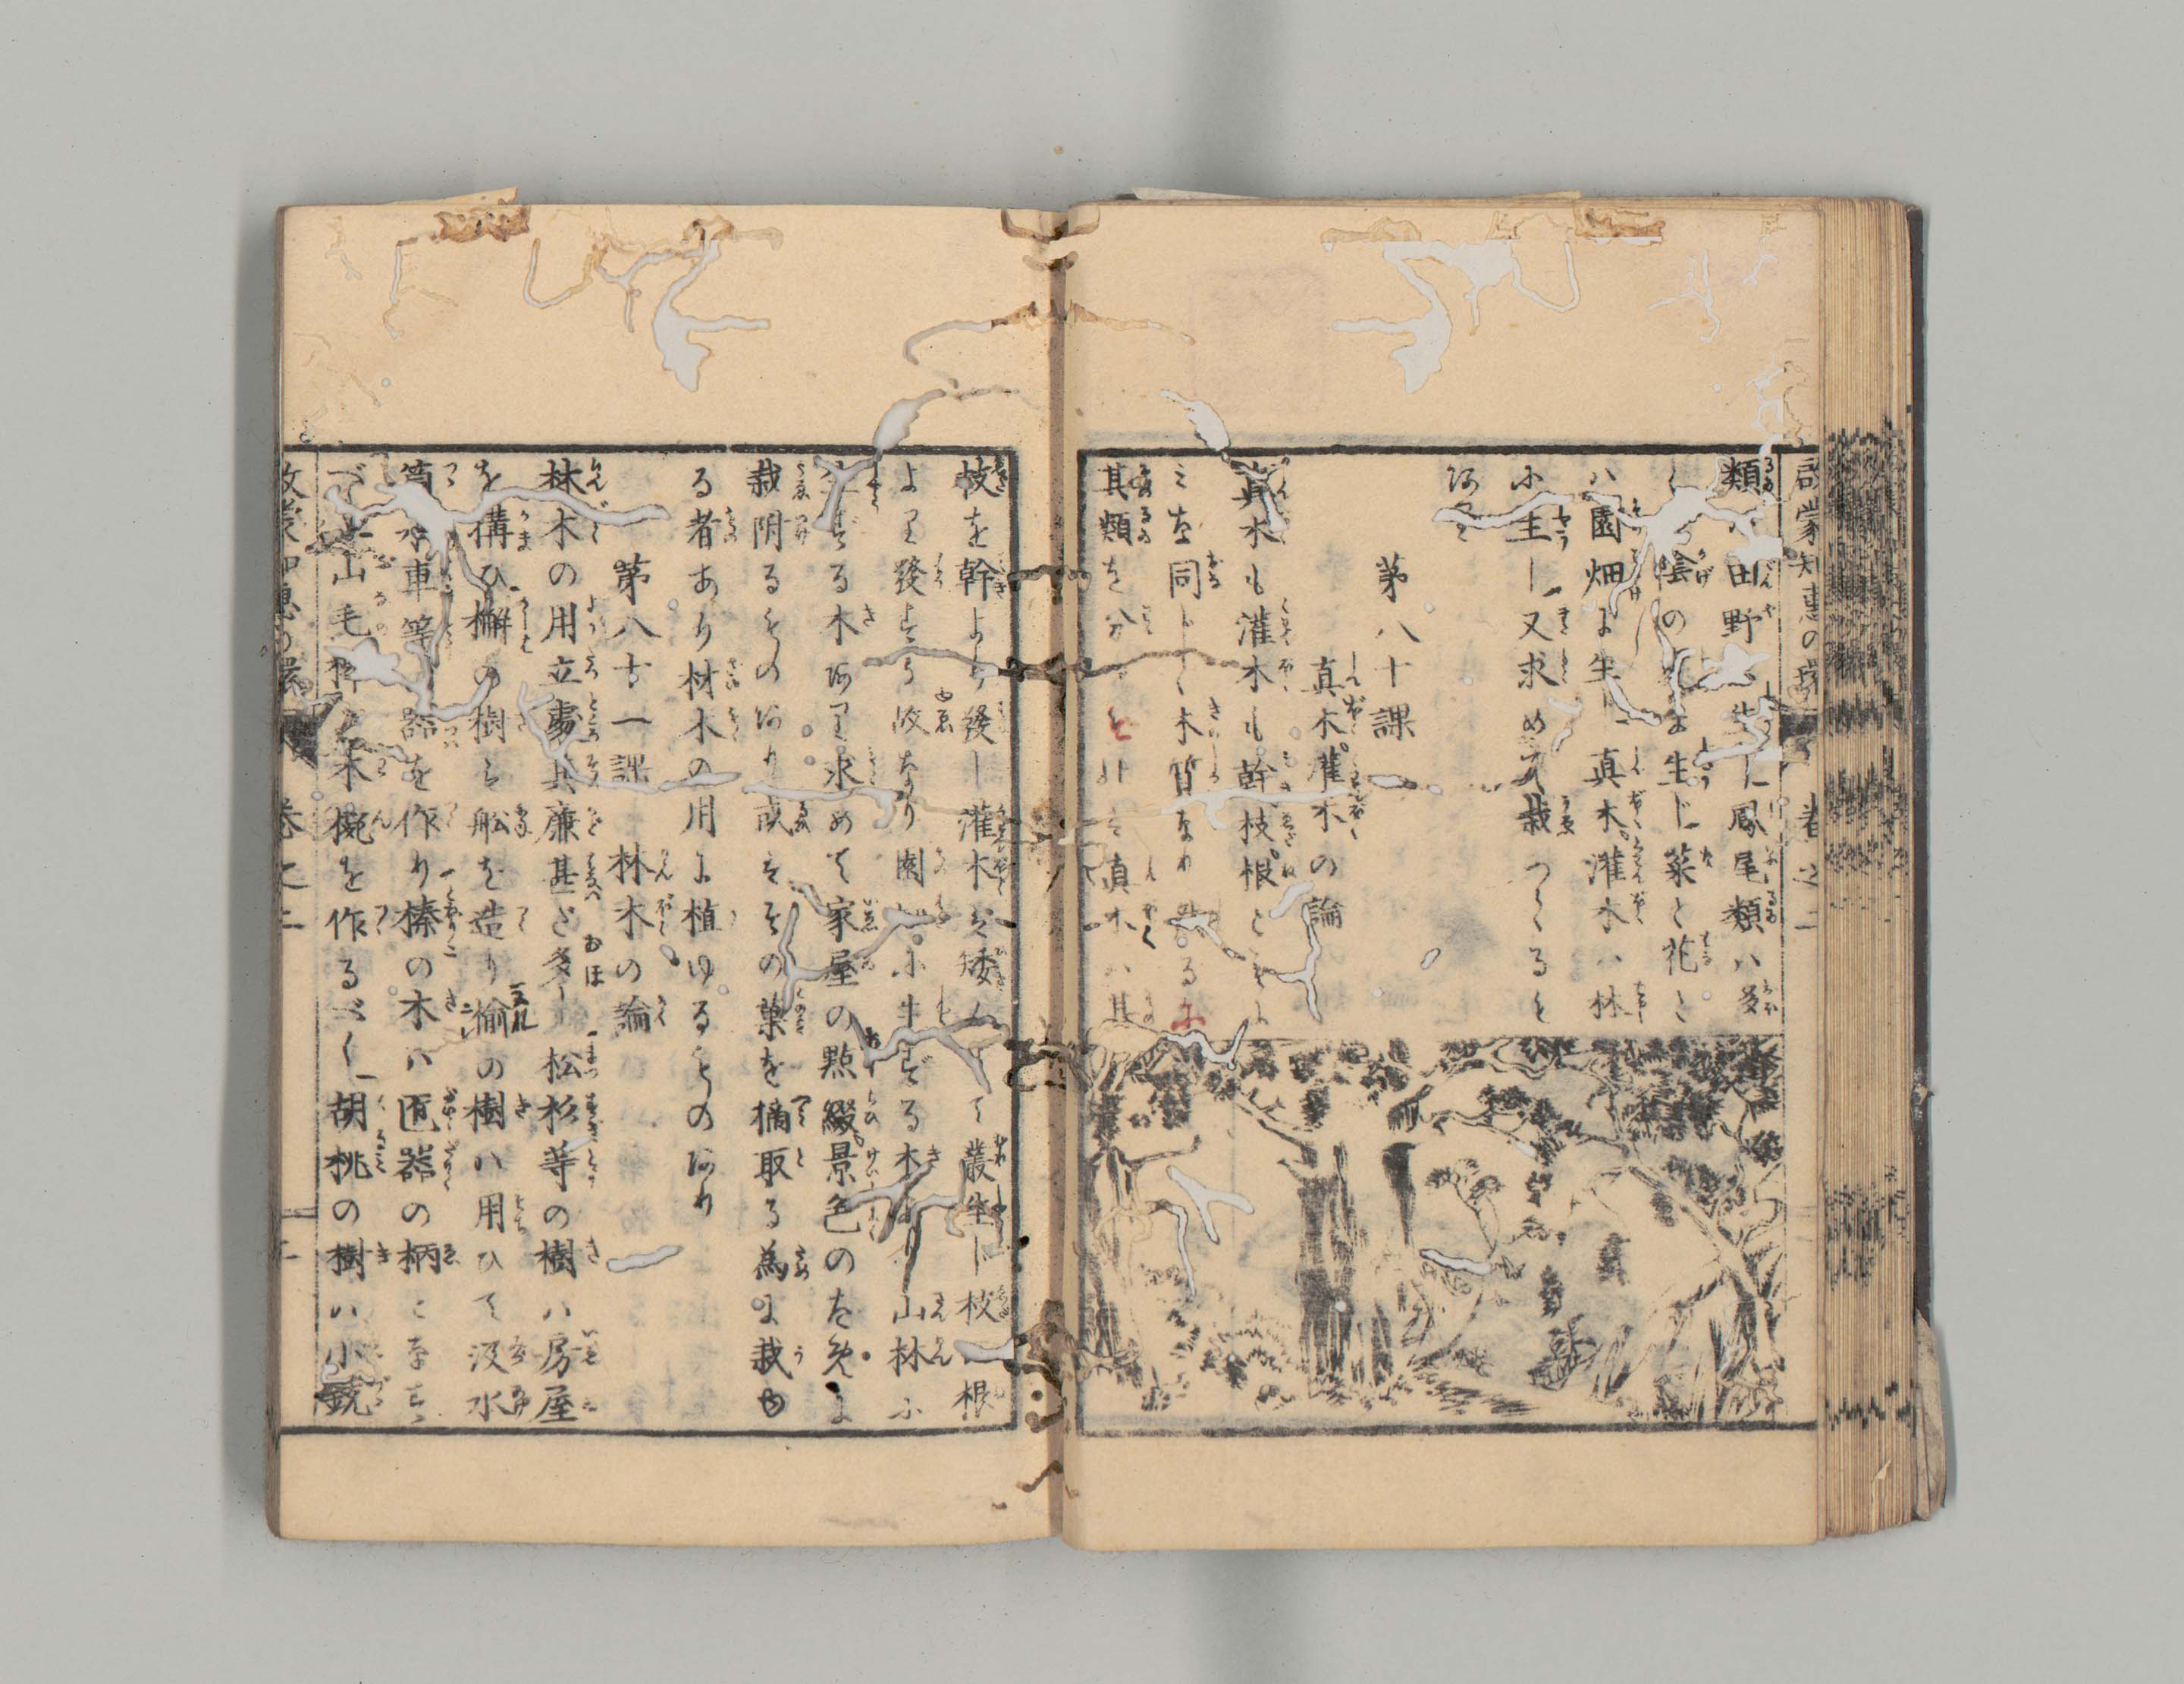 啓蒙知恵の環 巻之二
類ハ田野に生じ鳳尾類ハ多
く陰の處に生じ菜と花と
ハ園畑に生じ真木灌木ハ林
に生じ又求めて栽つくると
あり
第八十課
真木灌木の論
真木も灌木も幹枝根ともに
ミな同じく木質なれ
其類を分 真木ハ其
枝を幹より發し灌木ハ矮くして叢生じ枝 根
より發する故なり園 に生ずる木あり山林に
生ずる木あり求めて家屋の點綴景色のために
栽附るものあり或ハその菓を摘取る為に栽ゆ
る者あり材木の用に植ゆるものあり
第八十一課 林木の論
林木の用立處其廉甚だ多し松杉等の樹ハ房屋
を構ひ檞の樹ハ舩を造り楡の樹ハ用ひて汲水
筒水車等 器を作り榛の木ハ匠器の柄となす
べし山毛 木椀を作るべし胡桃の樹ハ小銃
啓蒙知恵の環 巻之二